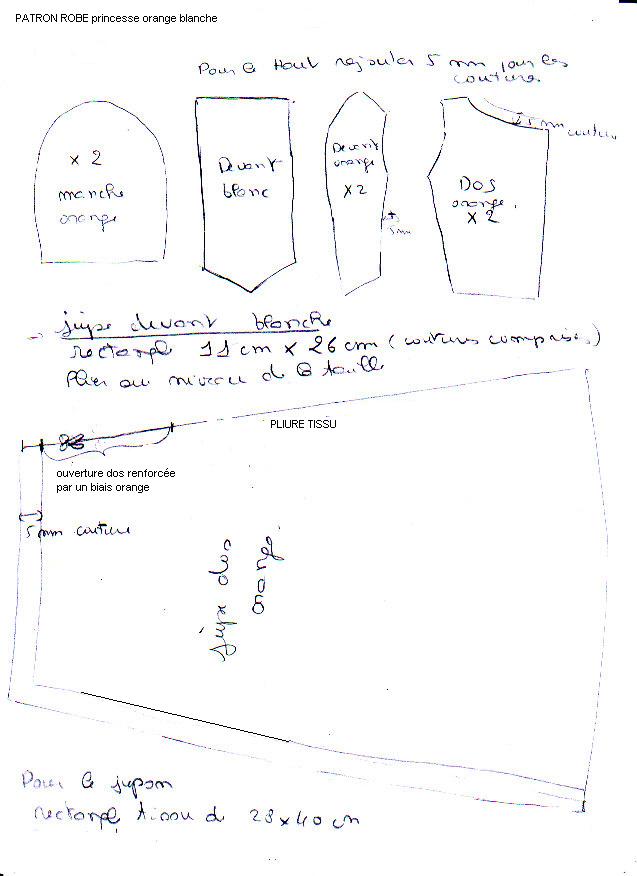 PATRON ROBE princesse orange blanche
Pour le Haut rajouter 5 mm pour les
couture.
x 2
manche
orange
Devant
blanc
Devant
orange
x 2
+
5mm
5 mm couture
Dos
orange.
x 2
→ jupe devant blanche
rectangle 11 cm x 26 cm (coutures comprise.)
Plier au niveau de la taille
PLIURE TISSU
ouverture dos renforcée
par un biais orange
5 mm couture
jupe dos
orange
Pour le jupon
rectangle tissu de 28 x 40 cm